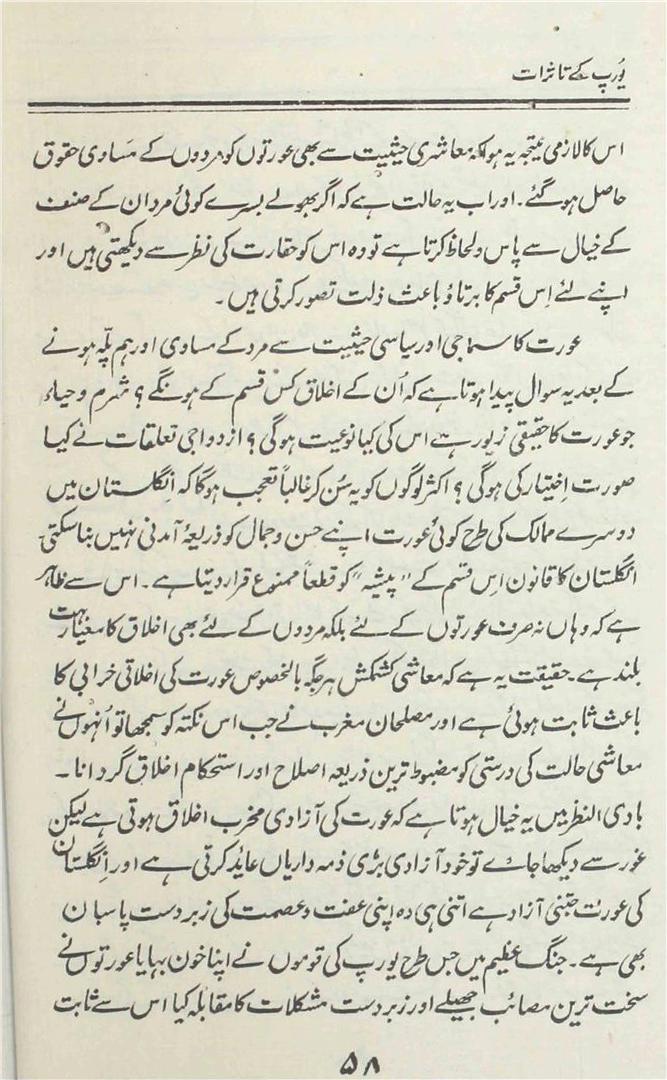 یورپ کے تاثرات
اس کا لازمی نتیجہ یہ ہوا کہ معاشری حیثیت سے بھی عورتوں کو مردوں کے مساوی حقوق
حاصل ہو گئے۔ اور اب یہ حالت ہے کہ اگر بھولے بسرے کوئی مرد ان کے صنف
کے خیال سے پاس و لحاظ کرتا ہے تو وہ اس کو حقارت کی نظر سے دیکھتی ہیں اور
اپنے لئے اِس قسم کا برتاؤ باعث ذلت تصور کرتی ہیں۔
عورت کا سماجی اور سیاسی حیثیت سے مرد کے مساوی اور ہم پلّہ ہونے
کے بعد یہ سوال پیدا ہوتا ہے کہ اُن کے اخلاق کس قسم کے ہونگے؟ شرم و حیاء
جو عورت کا حقیقی زیور ہے اس کی کیا نوعیت ہو گی؟ ازدواجی تعلقات نے کیا
صورت اِختیار کی ہو گی؟ اکثر لوگوں کو یہ سُن کر غالباً تعجب ہوگا کہ انگلستان میں
دوسرے ممالک کی طرح کوئی عورت اپنے حسن و جمال کو ذریعۂ آمدنی نہیں بنا سکتی۔
انگلستان کا قانون اِس قسم کے "پیشہ" کو قطعاً ممنوع قرار دیتا ہے۔ اس سے ظاہر
ہے کہ وہاں نہ صرف عورتوں کے لئے بلکہ مردوں کے لئے بھی اخلاق کا معیار بہت
بلند ہے۔ حقیقت یہ ہے کہ معاشی کشمکش ہر جگہ بالخصوص عورت کی اخلاقی خرابی کا
باعث ثابت ہوئی ہے اور مصلحان مغرب نے جب اس نکتہ کو سمجھا تو اُنہوں نے
معاشی حالت کی درستی کو مضبوط ترین ذریعہ اصلاح اور استحکام اخلاق گردانا۔
بادی النظر میں یہ خیال ہوتا ہے کہ عورت کی آزادی مخرب اخلاق ہوتی ہے لیکن
غور سے دیکھا جاے تو خود آزادی بڑی ذمہ داریاں عاید کرتی ہے اور انگلستان
کی عورت جتنی آزاد ہے اتنی ہی وہ اپنی عفت و عصمت کی زبردست پاسبان
بھی ہے۔ جنگ عظیم میں جس طرح یورپ کی قوموں نے اپنا خون بہایا عورتوں نے
سخت ترین مصائب جھیلے اور زبردست مشکلات کا مقابلہ کیا اس سے ثابت
۵۸